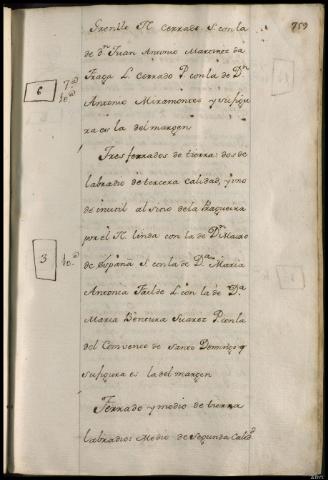 759
Grenile N. Cerrado S. con la
de dn. Juan Antonio Marttinez da
Fraga L. Cerrado P. con la de Dn.
Antonio Miramontes y su figu
ra es la del margen
6
Tres ferrados de tierra: dos de
labradio de tercera Calidad, y uno
de inutil al sitio de la Braqueira
por el N. linda con la de Dn. Mauro
de España S. con la de Da. Maria
3
Antonia Failde L. con la de Da.
Maria Bentura Suarez P. con la
del Convento de Santo Domingo y
su figura es la del margen
Ferrado y medio de tierra
labradios Medio de Segunda Calid.